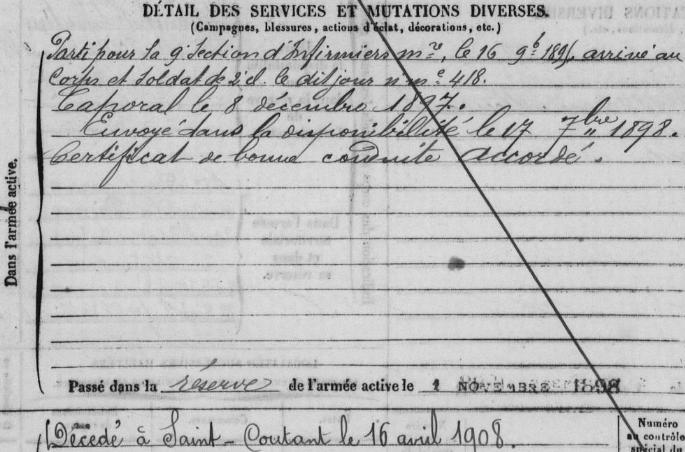 DÉTAIL DES SERVICES ET MUTATIONS DIVERSES.
(Campagnes, blessures, actions d'éclat, décorations, etc.)
Parti pour la 9e Section d'Infirmiers mre, le 16 9bre 1895, arrivé au
Corps et soldat de 2e cl. le dit jour n° me 418.
Caporal le 8 décembre 1897.
Envoyé dans la disponibilité le 17 7bre 1898.
Certificat de bonne conduite accordé.
Dans l'armée active.
Passé dans la réserve de l'armée active le 1 NOVEMBRE 1898
Décédé à Saint-Coutant le 16 avril 1908.
Numéro
au contrôle
spécial du